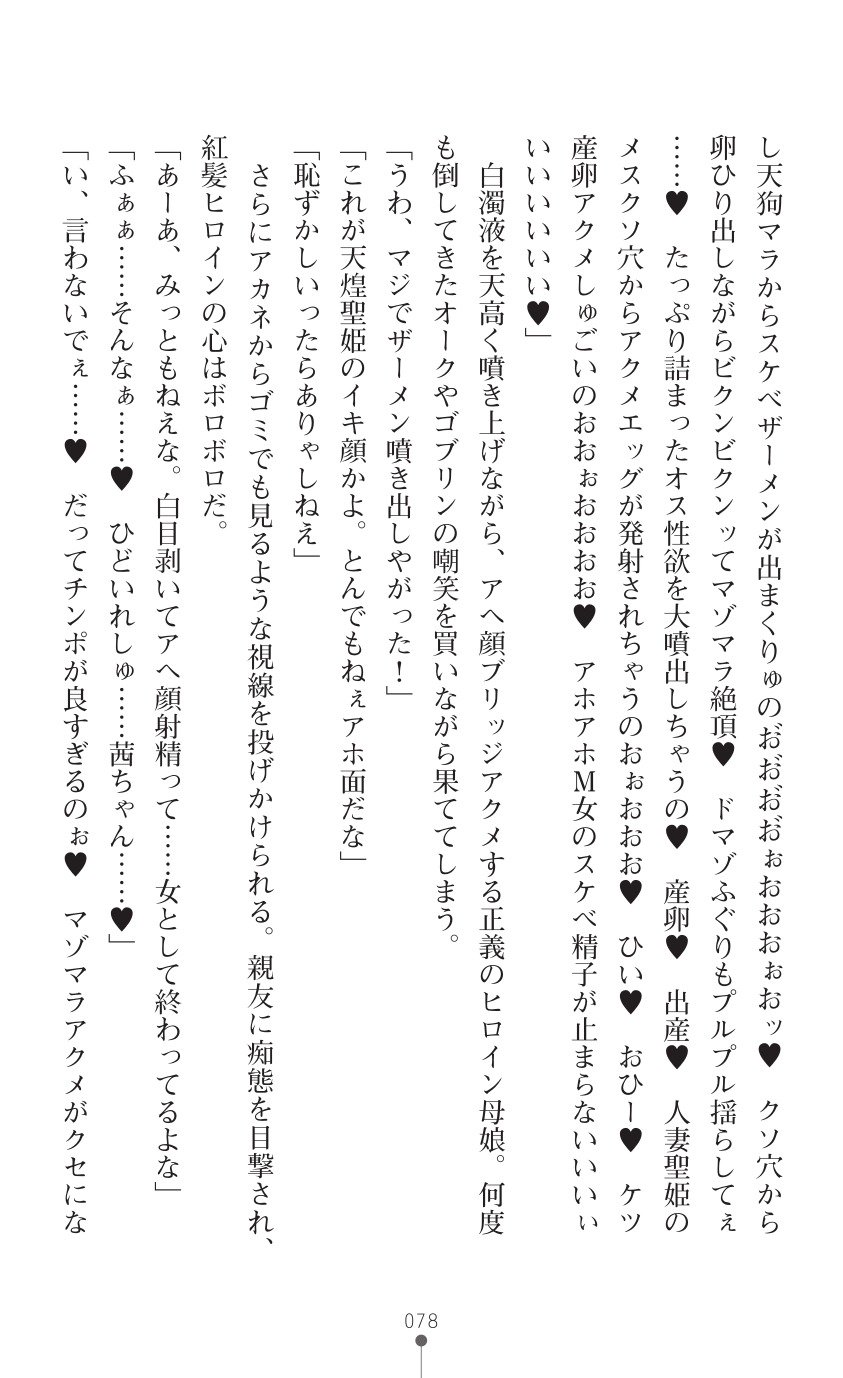 し天狗マラからスケベザーメンが出まくりゅのお゙お゙お゙お゙ぉおおおぉおッ♥　クソ穴から
卵ひり出しながらビクンビクンッてマゾマラ絶頂♥　ドマゾふぐりもプルプル揺らしてぇ
……♥　たっぷり詰まったオス性欲を大噴出しちゃうの♥　産卵♥　出産♥　人妻聖姫の
メスクソ穴からアクメエッグが発射されちゃうのおぉおおお♥　ひい♥　おひー♥　ケツ
産卵アクメしゅごいのおおぉおおおお♥　アホアホM女のスケベ精子が止まらないいいぃ
いいいいいい♥」
　白濁液を天高く噴き上げながら、アヘ顔ブリッジアクメする正義のヒロイン母娘。何度
も倒してきたオークやゴブリンの嘲笑を買いながら果ててしまう。
「うわ、マジでザーメン噴き出しやがった！」
「これが天煌聖姫のイキ顔かよ。とんでもねぇアホ面だな」
「恥ずかしいったらありゃしねえ」
　さらにアカネからゴミでも見るような視線を投げかけられる。親友に痴態を目撃され、
紅髪ヒロインの心はボロボロだ。
「あーあ、みっともねえな。白目剥いてアヘ顔射精って……女として終わってるよな」
「ふぁぁ……そんなぁ……♥　ひどいれしゅ……茜ちゃん……♥」
「い、言わないでぇ……♥　だってチンポが良すぎるのぉ♥　マゾマラアクメがクセにな
078